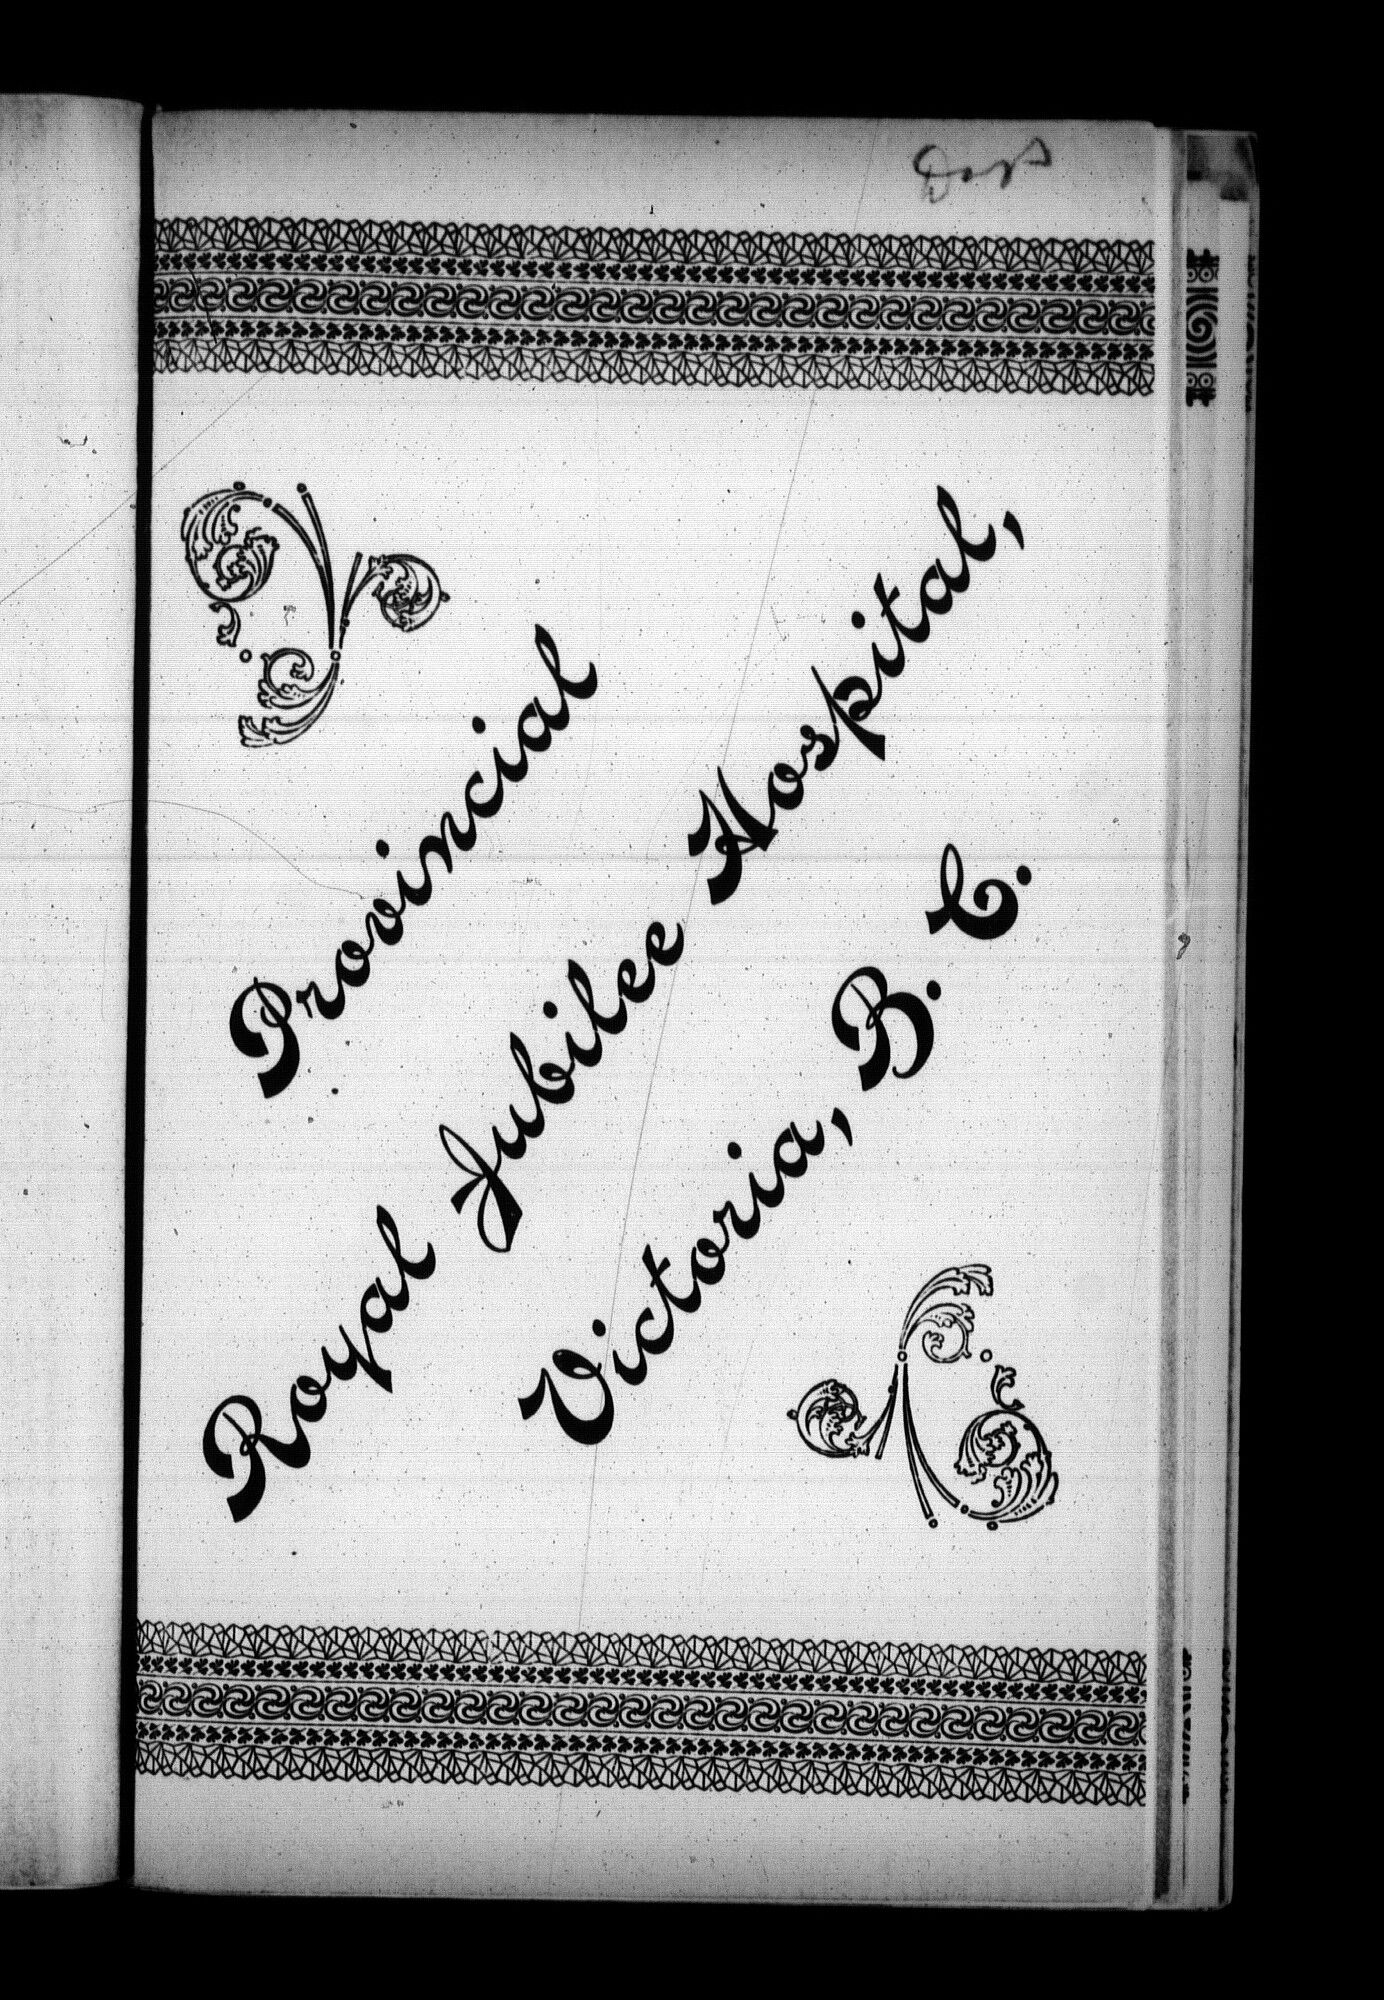 Provincial
Royal Jubilee Hospital,
Victoria, B. C.